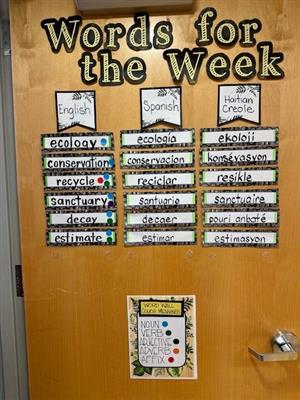 Words for
the Week
English Spanish Haitian Creole
ecology ecología ekoloji
conservation conservacion konsèvasyon
recycle reciclar resikle
sanctuary santuario sanctuaire
decay decaer pouri anbaté
estimate estimar estimasyon
WORD WALL
COLOR MEANINGS
NOUN
VERB
ADJECTIVE
ADVERB
AFFIX